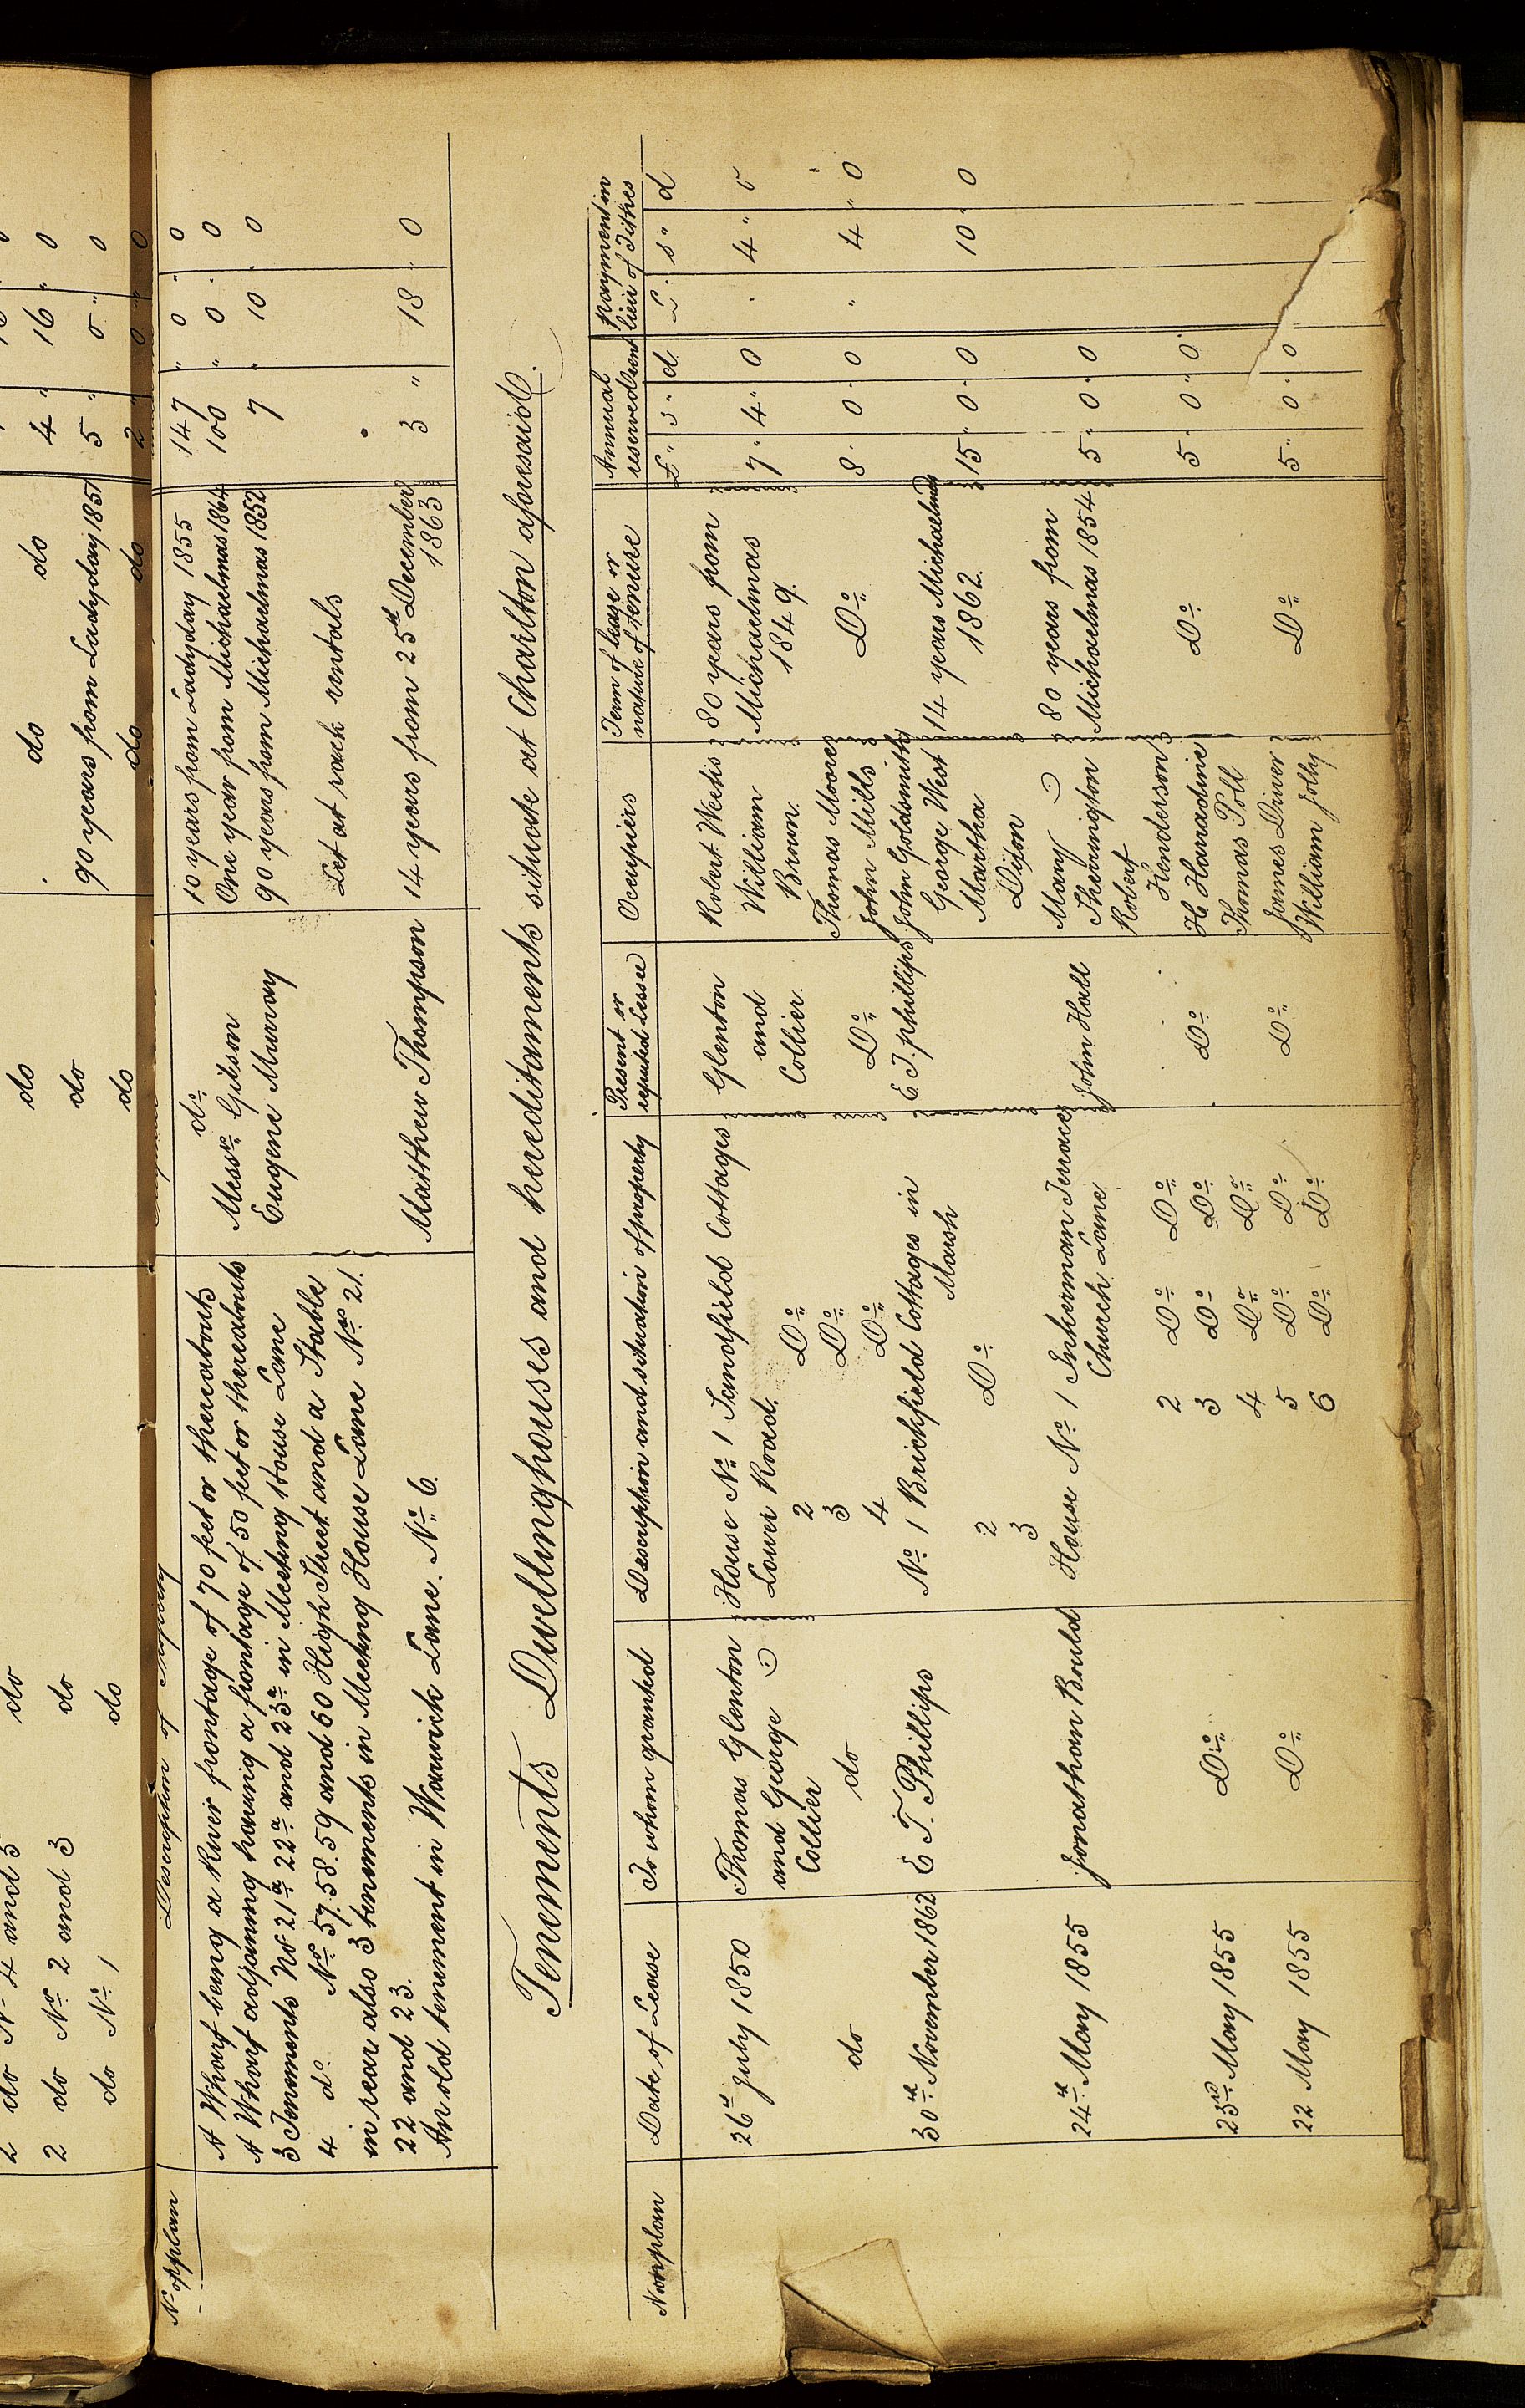 2 do No 4 and 5 do do
2 do Nos 2 and 3 do do do do 4 " 16 " 0
do No 1 do do 90 years from Ladyday 1851 5 " 0 " 0
do do 2 " 0 " 0
No on plan Description of Property
A Wharf being a River frontage of 70 feet or thereabouts do 10 years from Ladyday 1855 147 " 0 " 0
A Wharf adjoining having a frontage of 50 feet or thereabouts Messrs Gibson One year from Michaelmas 1864 100 " 0 " 0
3 Tenements No 21a 22a and 23a in Meeting House Lane Eugene Murray 90 years from Michaelmas 1852 7 " 10 " 0
4 do Nos 57. 58. 59 and 60 High Street and a Stable
in rear also 3 tenements in Meeting House Lane Nos 21. Let at rack rentals
22 and 23.
An old tenement in Warwick Lane. No 6. Matthew Thompson 14 years from 25th December 3 " 18 " 0
1863
Tenements Dwellinghouses and hereditaments situate at Charlton aforesaid.
No on plan Date of Lease To whom granted Description and situation of property Present or reputed Lessee Occupiers Term of lease or nature of tenure Annual reserved Rent Payment in lieu of Tithes
£ " s " d £ " s " d
26th July 1850 Thomas Glenton House No 1 Sandfield Cottages Glenton Robert Weetis 80 years from 7 " 4 " 0 " 4 " 0
and George Lower Road. and William Michaelmas
Collier 2 Do Collier. Brown. 1849.
do do 3 Do Thomas Moore
4 Do Do John Mills Do 8 " 0 " 0 " 4 " 0
John Goldsmith
30th November 1862 E T. Phillips No 1 Brickfield Cottages in E T. Phillips George West 14 years Michaelmas
Marsh Martha 1862. 15 " 0 " 0 10 " 0
2 Do Dixon
3
24th May 1855 Jonathan Bould House No 1 Inkerman Terrace John Hall Mary 80 years from
Church Lane Sherrington Michaelmas 1854 5 " 0 " 0
Robert
2 Do Do Henderson
23rd May 1855 Do 3 Do Do Do H. Harradine Do 5 " 0 " 0
4 Do Do Thomas Poll
22 May 1855 Do 5 Do Do Do James Driver Do 5 " 0 " 0
6 Do Do William Jolly